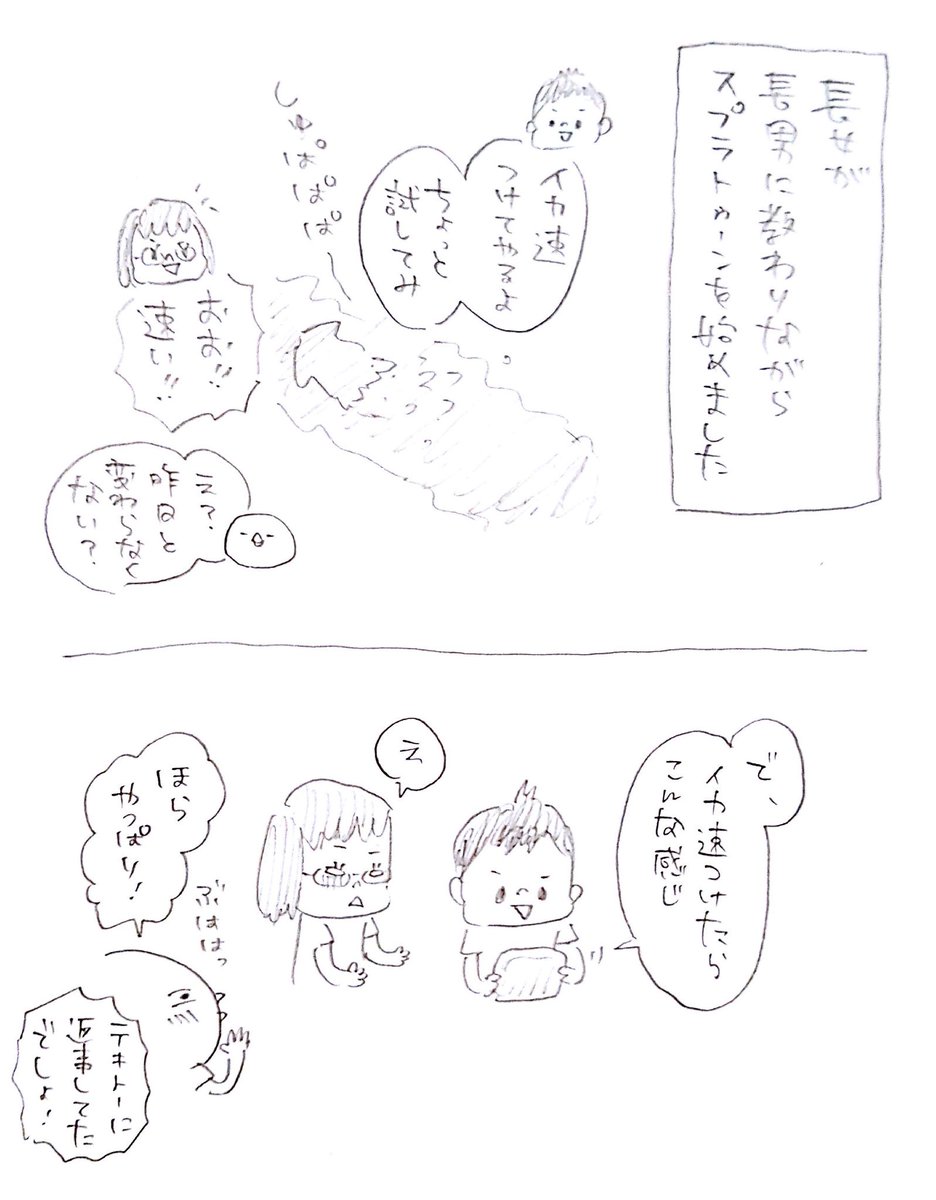 長女が
長男に教わりながら
スプラトゥーンを始めました
イカ速
つけてやるよ
ちょっと
試してみ
しゅぱぱぱ
スーッ
おお!!
速い!!
え?
昨日と
変わらなく
ない?
で、
イカ速つけたら
こんな感じ
え
ほら
やっぱり!
ぶははっ
テキトーに
返事してた
でしょ!